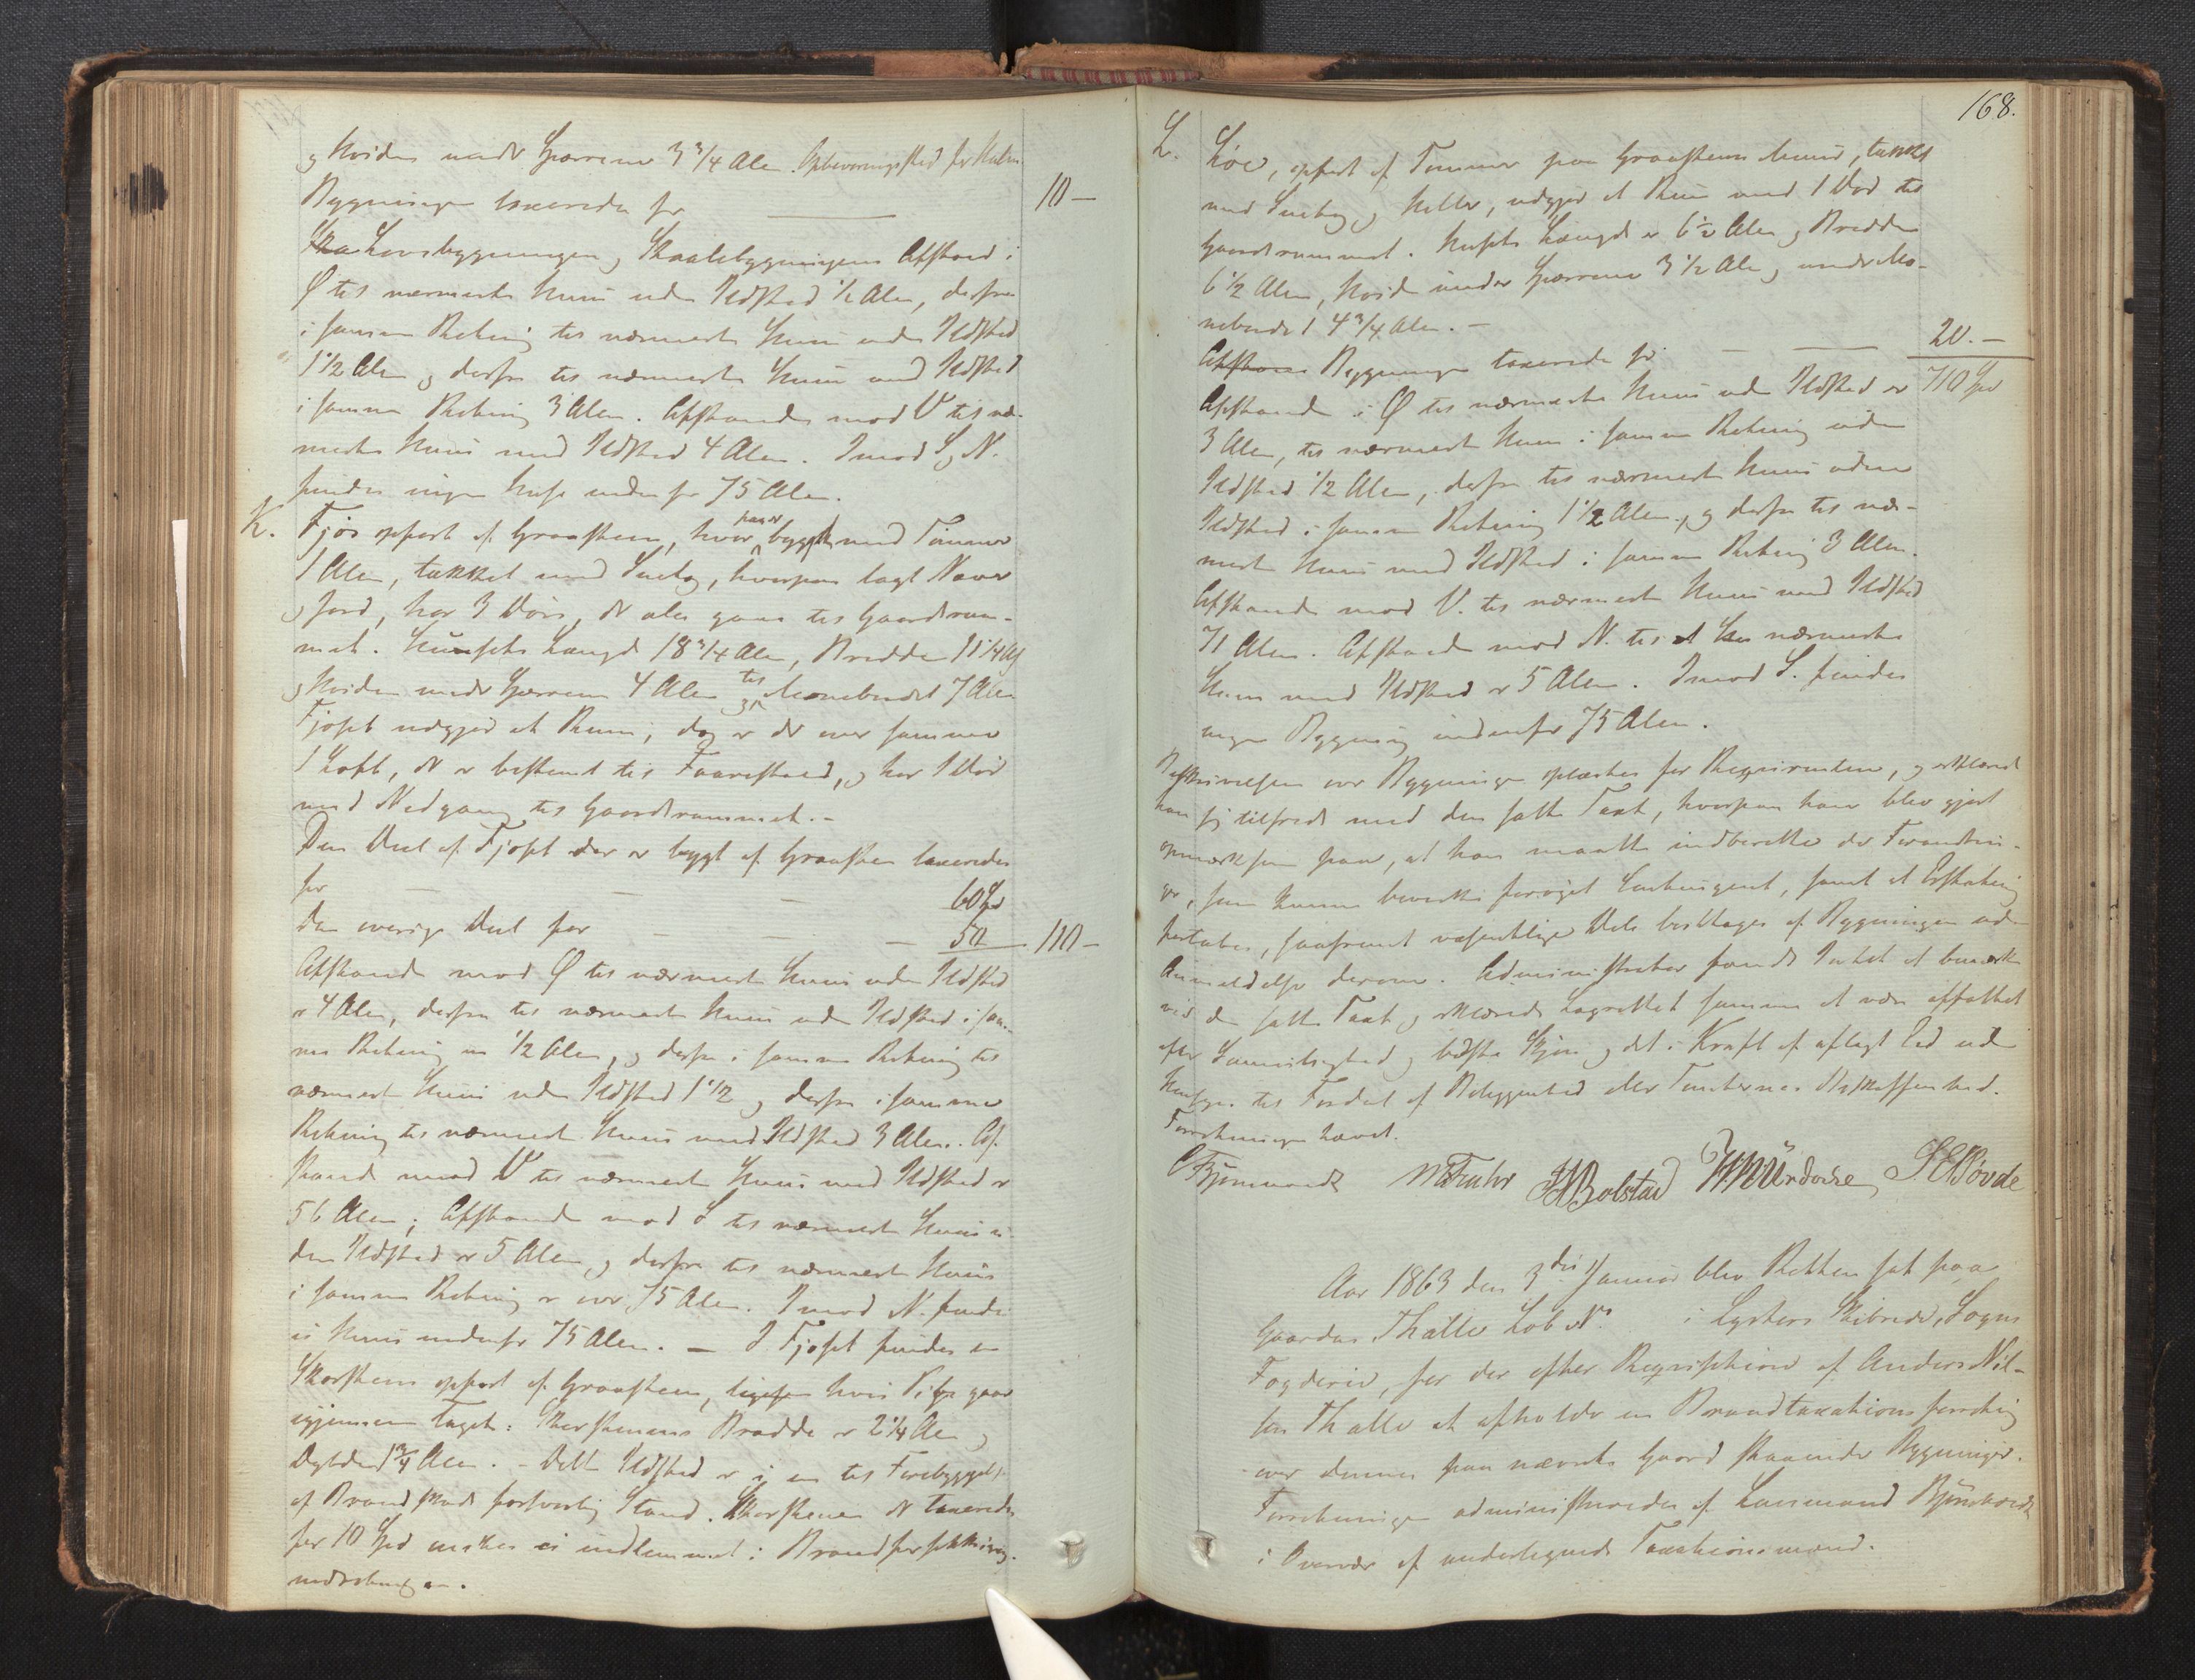 og Høiden under Sparrene 3 3/4 Alen. Opbevaringssted for Halm.
Bygningen taxeredes for — 10 —
Lovebygningen og Skaalebygningens Afstand i
Ø til nærmeste Huus uden Ildsted 1/2 Alen, derfra
i samme Retning til nærmeste Huus uden Ildsted
1 1/2 Alen og derfra til nærmeste Huus med Ildsted
i samme Retning 3 Alen. Afstanden mod V til nær-
meste Huus med Ildsted 4 Alen. Imod S og N.
findes ingen Huse indenfor 75 Alen.
K. Fjøs opført af Graasteen, hvor paa er bygget med Tømmer
1 Alen, tækket med Sutag, hvorpaa lagt Næver
og Jord, har 3 Døre, der alle gaar til Gaardsrum-
met. Huusets Længde 18 3/4 Alen, Bredde 11 1/4 Al
og Høiden under Sparrene 4 Alen og til Mønebeendet 7 Alen
Fjøset udgjør et Rum, dog er der over samme
1 Loft, der er bestemt til Faarestald, og har 1 Dør
med Nedgang til Gaardsrummet. -
Den Deel af Fjøset der er bygt af Graasteen taxeredes
for — — — 60 Spd
den øvrige Deel for — — — 50 — 110 —
Afstanden mod Ø til nærmeste Huus uden Ildsted
er 4 Alen, derfra til nærmeste Huus uden Ildsted i sam-
me Retning en 1/2 Alen, og derfra i samme Retning til
nærmeste Huus uden Ildsted 1 1/2 og derfra i samme
Retning til nærmeste Huus med Ildsted 3 Alen. Af-
standen mod V til nærmeste Huus med Ildsted er
56 Alen; Afstanden mod S til nærmeste Huus u-
den Ildsted er 5 Alen, og derfra til nærmeste Huus
i samme Retning er over 75 Alen. Imod N. findes
ei Huus indenfor 75 Alen. — I Fjøset findes en
Skorsteen opført af Graasteen, hvis Pibe gaar
igjennem Taget: Skorstenens Bredde er 2 1/4 Alen og
Dybden 1 3/4 Alen. - Dette Ildsted er i en til Forebyggelse
af Brandskade forsvarlig Stand. Skorstenen der taxeredes
for 10 Spd ønskes ei indlemmet i Brandforsikkrings-
indretningen.
168.
L. Løe, opført af Tømmer paa Graasteens Muur, tækket
med Sutag og Heller, udgjør et Rum med 1 Dør til
Gaardsrummet. Husets Længde er 6 1/2 Alen og Bredden
6 1/2 Alen, Høiden under Sparrene 3 1/2 Alen og under Mø-
nebeendet 4 3/4 Alen. -
Bygningen taxeredes for — — 20. —
710 Spd
Afstanden i Ø til nærmeste Huus uden Ildsted er
3 Alen, til nærmeste Huus i samme Retning uden
Ildsted 1/2 Alen, derfra til nærmeste Huus uden
Ildsted i samme Retning 1 1/2 Alen, og derfra til nær-
meste Huus med Ildsted i samme Retning 3 Alen.
Afstanden mod V. til nærmeste Huus med Ildsted
71 Alen. Afstanden mod N. til nærmeste
Huus med Ildsted er 5 Alen. Imod S. findes
ingen Bygning indenfor 75 Alen.
Beskrivelsen over Bygningen oplæstes for Requirenten, og erklærede
han sig tilfreds med den satte Taxt, hvorpaa han blev gjort
opmærksom paa, at han maatte indberette de Forandrin-
ger, som kunne bevirke forøget Contingent, samt at Erstatning
fortabes, saafremt væsentlige Dele borttages af Bygningen uden
Anmeldelse derom. Administrator fandt Intet at bemærke
ved den satte Taxt og erklærede Lagrettet samme at være affattet
efter Samvittighed og bedste Skjøn og det i Kraft af aflagt Eed uden
Hensyn til Fordeel af Beliggenhed eller Tomternes Beskaffenhed.
Forretningen hævet.
Bolstad
S E Bøvde
Aar 1863 den 3die Januar blev Retten sat paa
Gaarden Thalle Løb No. i Lysters Skibrede, Sogns
Fogderie, for der efter Requisition af Anders Nil-
sen Thalle at afholde en Brandtaxationsforretning
over dennes paa nævnte Gaard staaende Bygninger.
Forretningen administreredes af Lensmand
i Overvær af undertegnede Taxationsmænd.